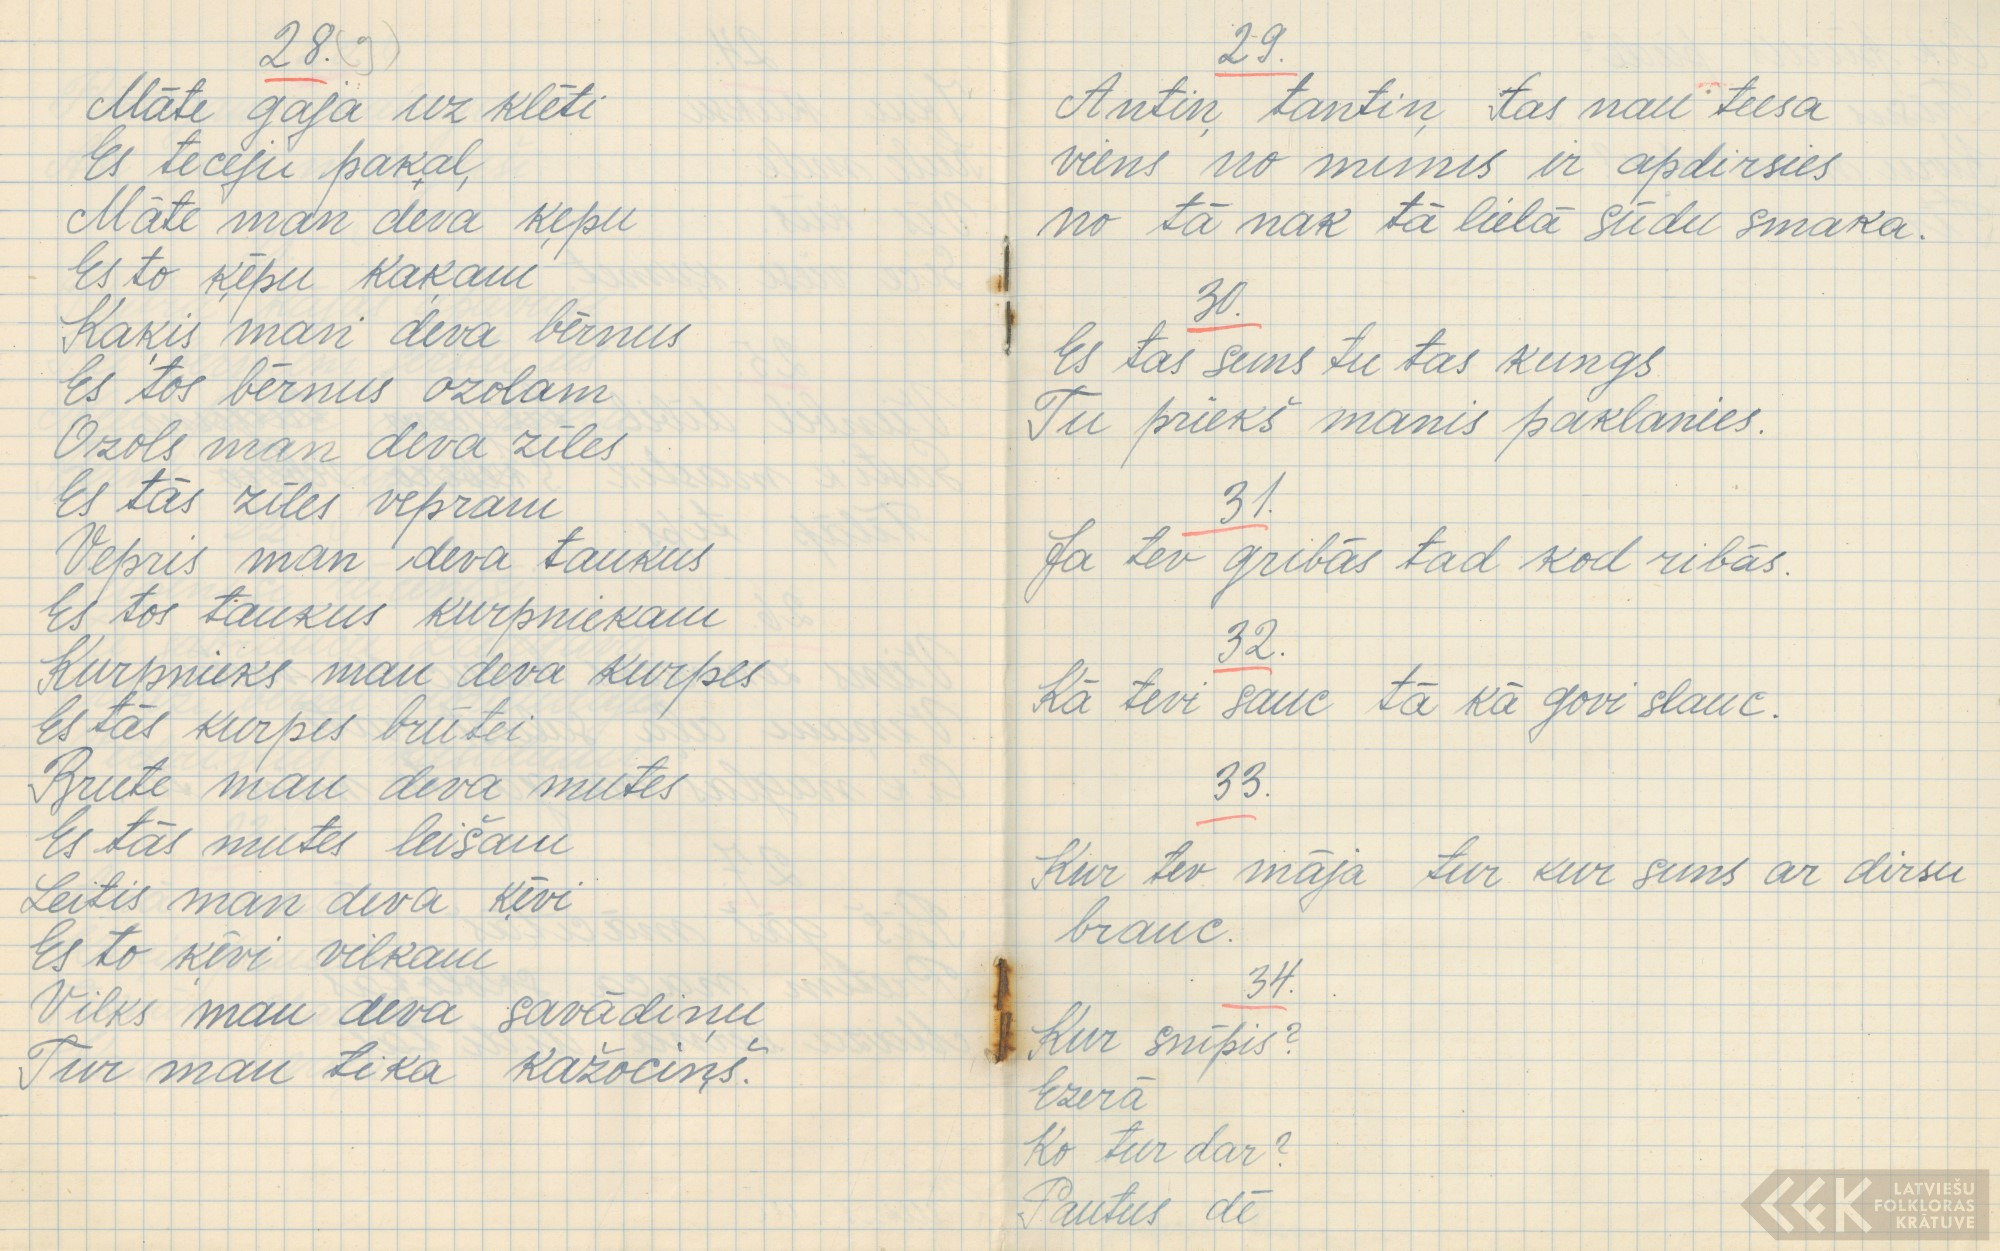 28. (g)
Māte gāja uz klēti
Es teceju pakaļ,
Māte man deva ķepu
Es to ķēpu kaķam
Kaķis man deva bērnus
Es tos bērnus ozolam
Ozols man deva zīles
Es tās zīles vepram
Vepris man deva taukus
Es tos taukus kurpniekam
Kurpnieks man deva kurpes
Es tās kurpes brūtei
Brute man deva mutes
Es tās mutes leišam
Leitis man deva ķēvi
Es to ķēvi vilkam
Vilks man deva savādiņu
Tur man tika kažociņš.
29.
Antiņ, tantiņ, tas nau teesa
viens no mums ir apdirsies
no tā nak tā lielā sūdu smaka.
30.
Es tas suns tu tas kungs
Tu priekš manis paklanies.
31.
Ja tev gribās tad kod ribās.
32.
Kā tevi sauc tā kā govi slauc.
33.
Kur tev māja tur kur suns ar dirsu
brauc.
34.
Kur snīpis?
Ezerā
Ko tur dar?
Pautus dē
LATVIEŠU
FOLKLORAS
KRĀTUVE